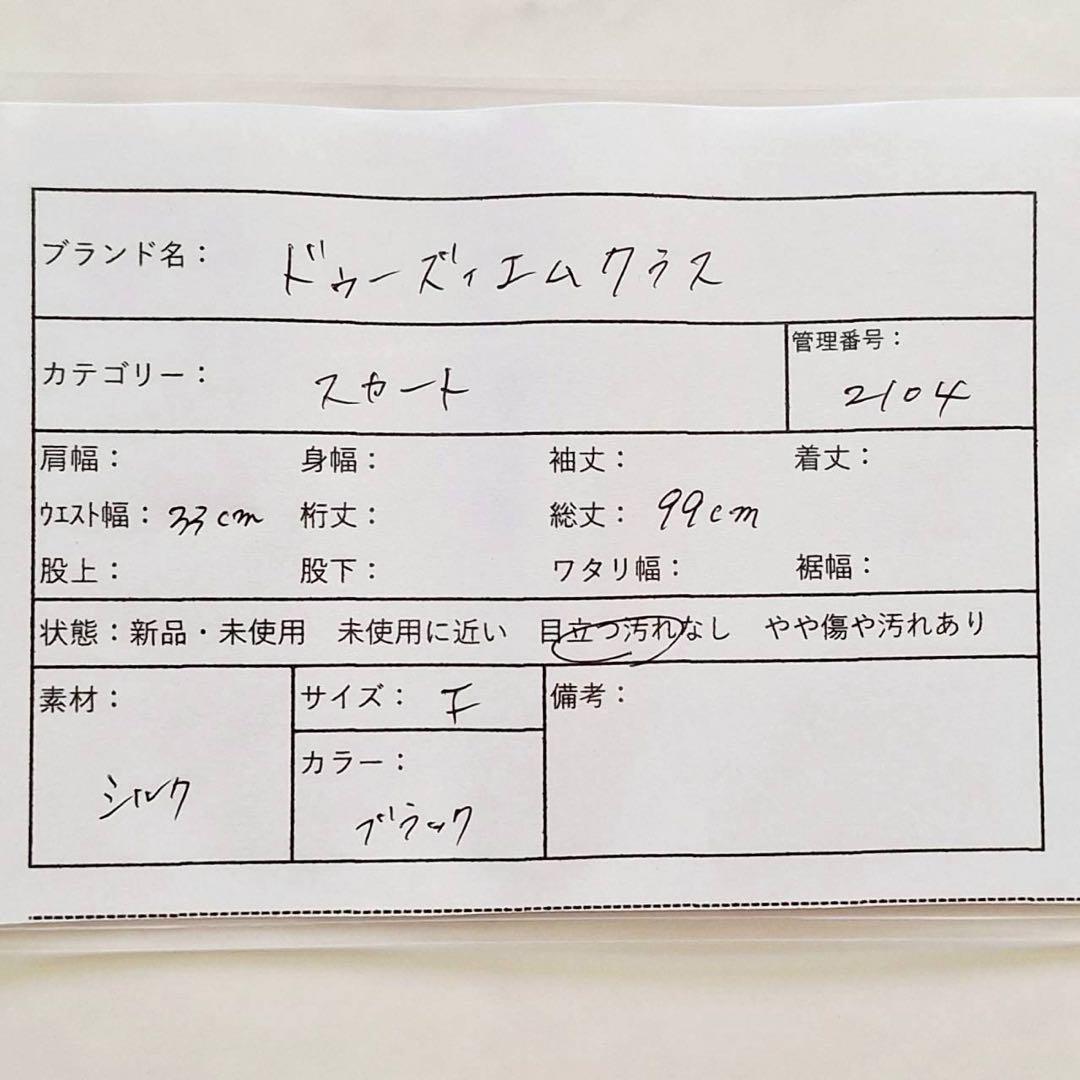 ブランド名: ドゥーズィエムクラス
カテゴリー: スカート
管理番号:
2104
肩幅: 身幅: 袖丈: 着丈:
ウエスト幅: 33cm 裄丈: 総丈: 99cm
股上: 股下: ワタリ幅: 裾幅:
状態:新品・未使用 未使用に近い 目立つ汚れなし やや傷や汚れあり
素材: サイズ: F 備考:
カラー:
シルク ブラック